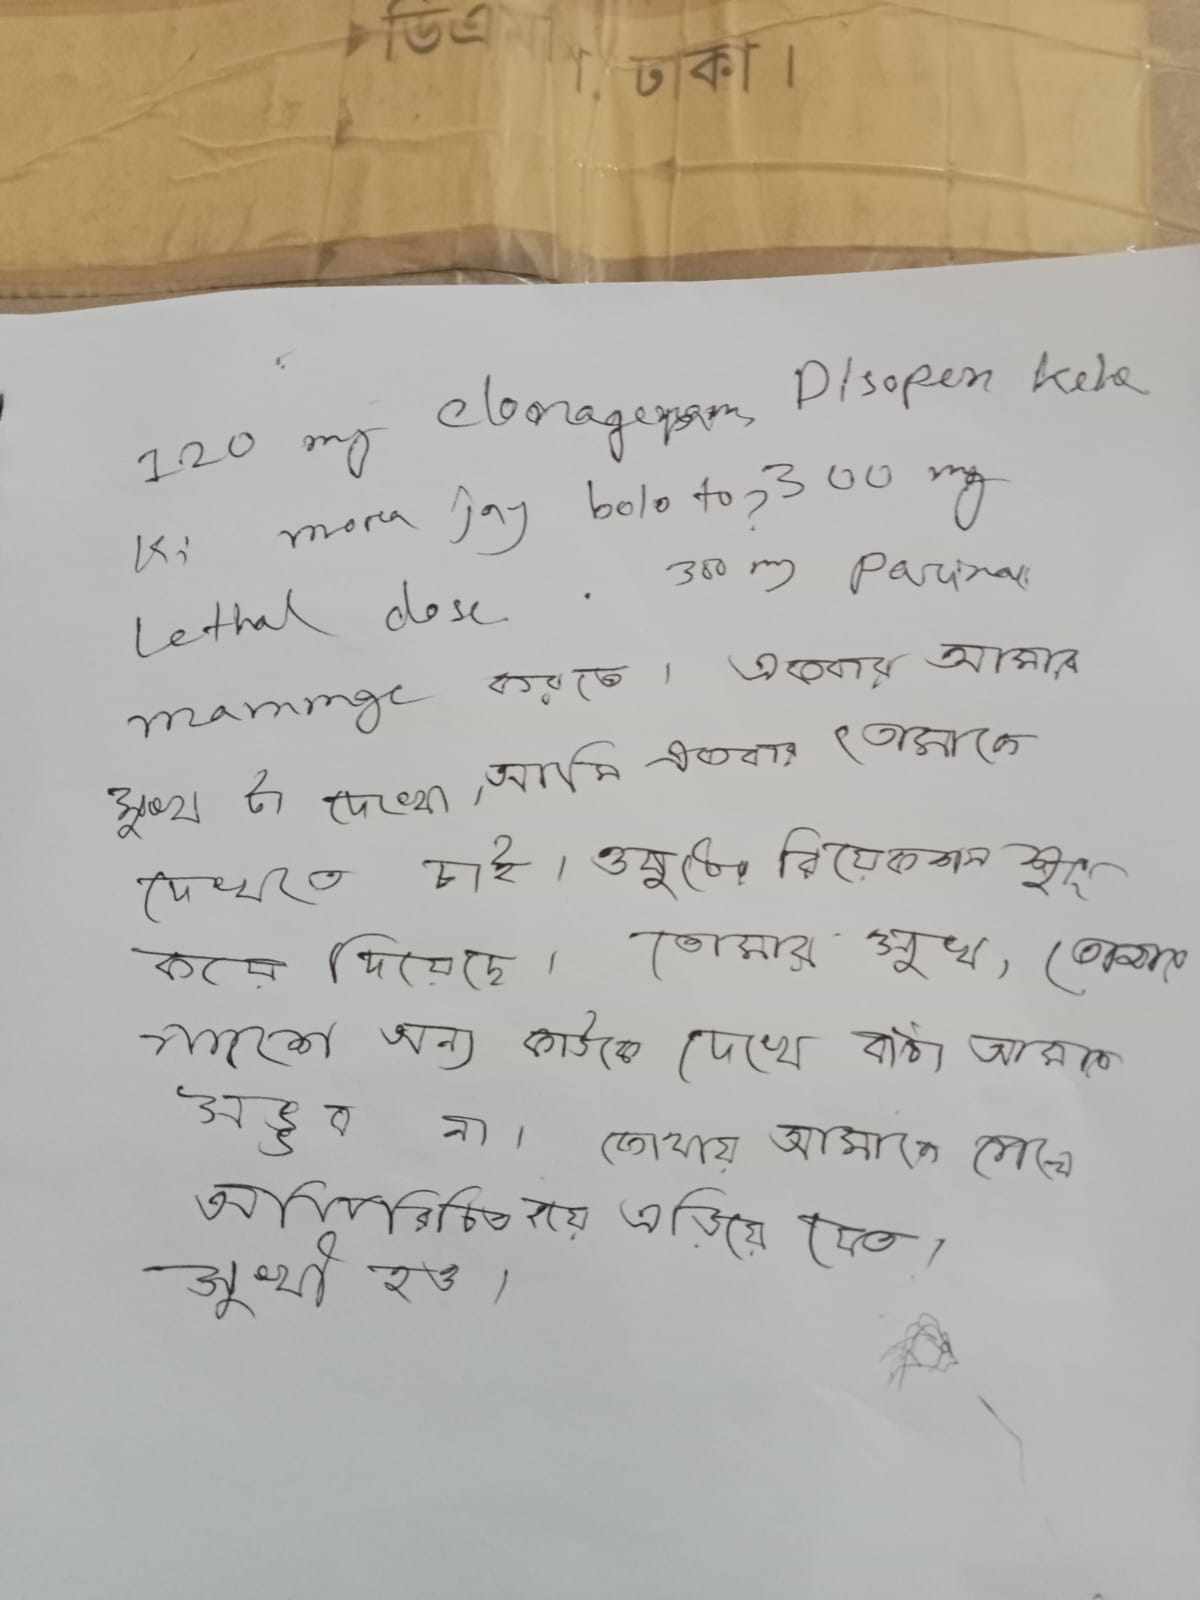 ডিএমপি, ঢাকা।
120 mg clonazepam, Disopan kete
ki mora jay bolo to? 300 mg
Lethal dose. 300 mg parinai
mannage করতে। একবার আমার
মুখ টা দেখো, আমি একবার তোমাকে
দেখতে চাই। ওষুধের রিয়েকশন শুরু
করে দিয়েছে। তোমার মুখ, তোমার
অন্য কাউকে দেখে বাঁচা আমার
সম্ভব না। আমাকে দেখে
অপরিচিত হয়ে এড়িয়ে যেত।
সুখী হও।